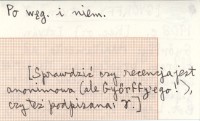 Po węg. i niem.
[Sprawdzić czy recenzja jest
anonimowa (ale Györffy'ego!),
czy też podpisana: γ.]